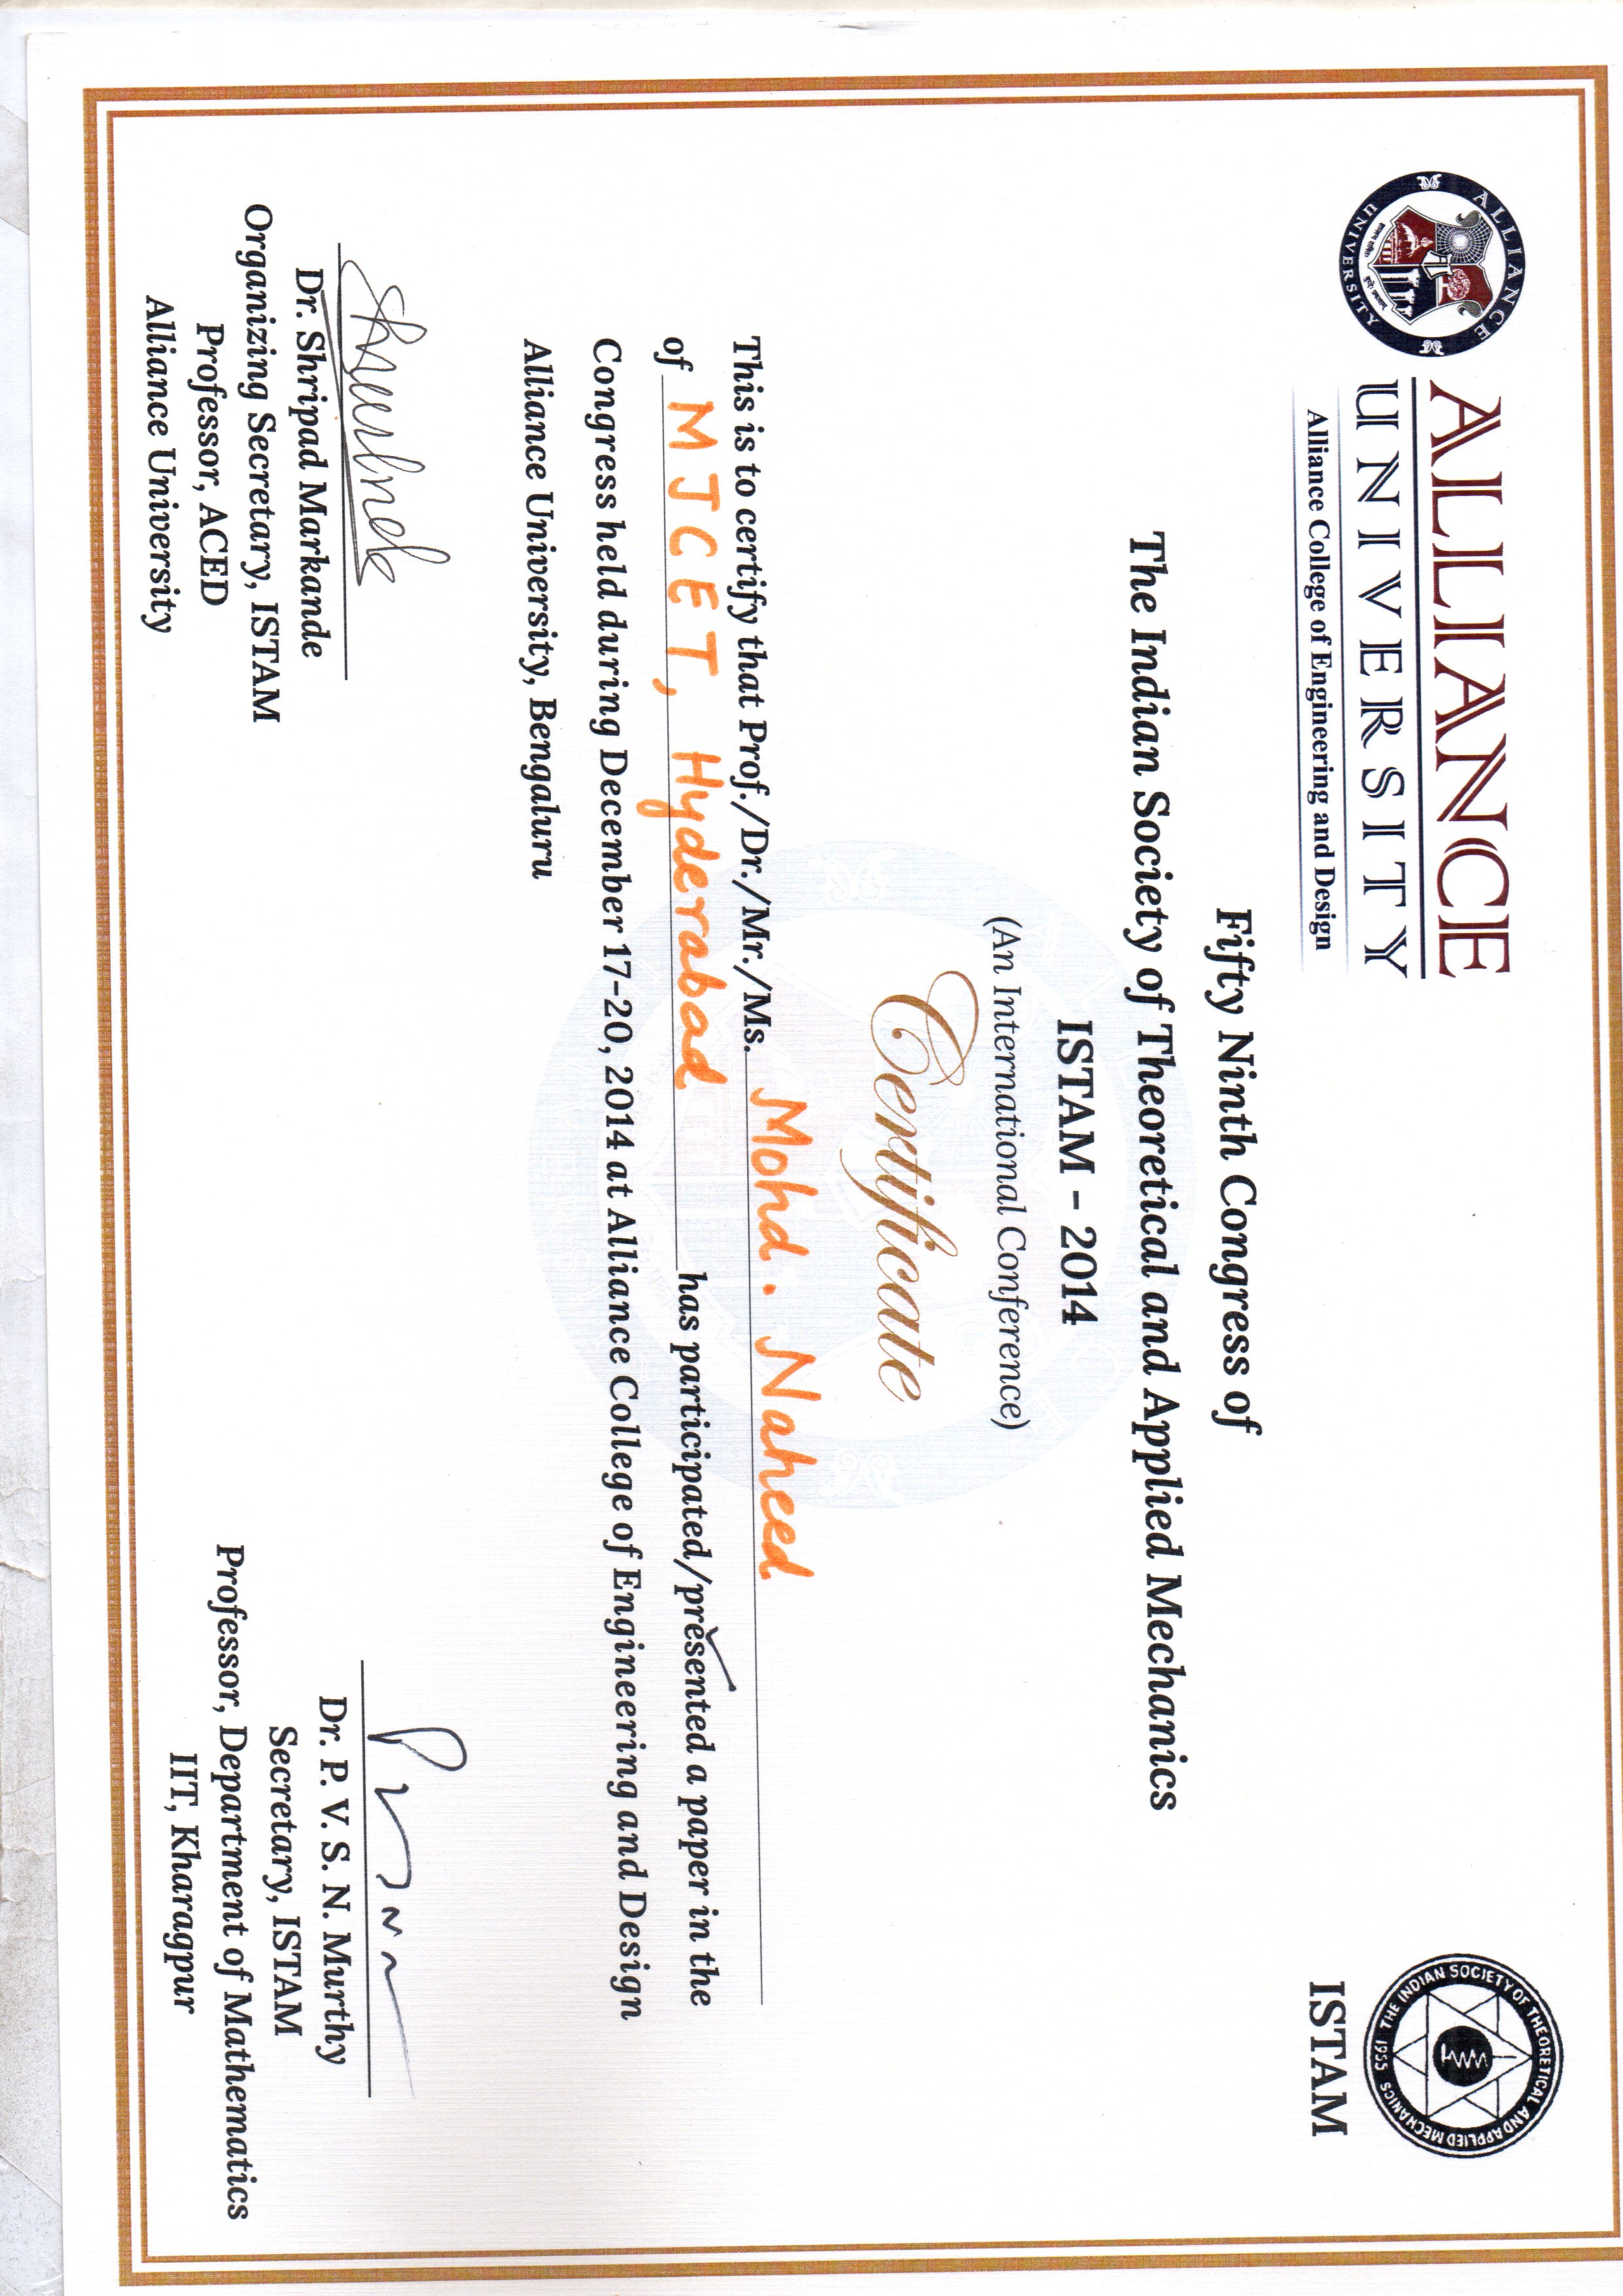 ALLIANCE UNIVERSITY
ALLIANCE
UNIVERSITY
Alliance College of Engineering and Design
THE INDIAN SOCIETY OF THEORETICAL AND APPLIED MECHANICS 1955
ISTAM
Fifty Ninth Congress of
The Indian Society of Theoretical and Applied Mechanics
ISTAM – 2014
(An International Conference)
Certificate
This is to certify that Prof./Dr./Mr./Ms. Mohd. Naheed
of MJCET, Hyderabad has participated/presented a paper in the
Congress held during December 17-20, 2014 at Alliance College of Engineering and Design
Alliance University, Bengaluru
Dr. Shripad Markande
Organizing Secretary, ISTAM
Professor, ACED
Alliance University
Dr. P. V. S. N. Murthy
Secretary, ISTAM
Professor, Department of Mathematics
IIT, Kharagpur